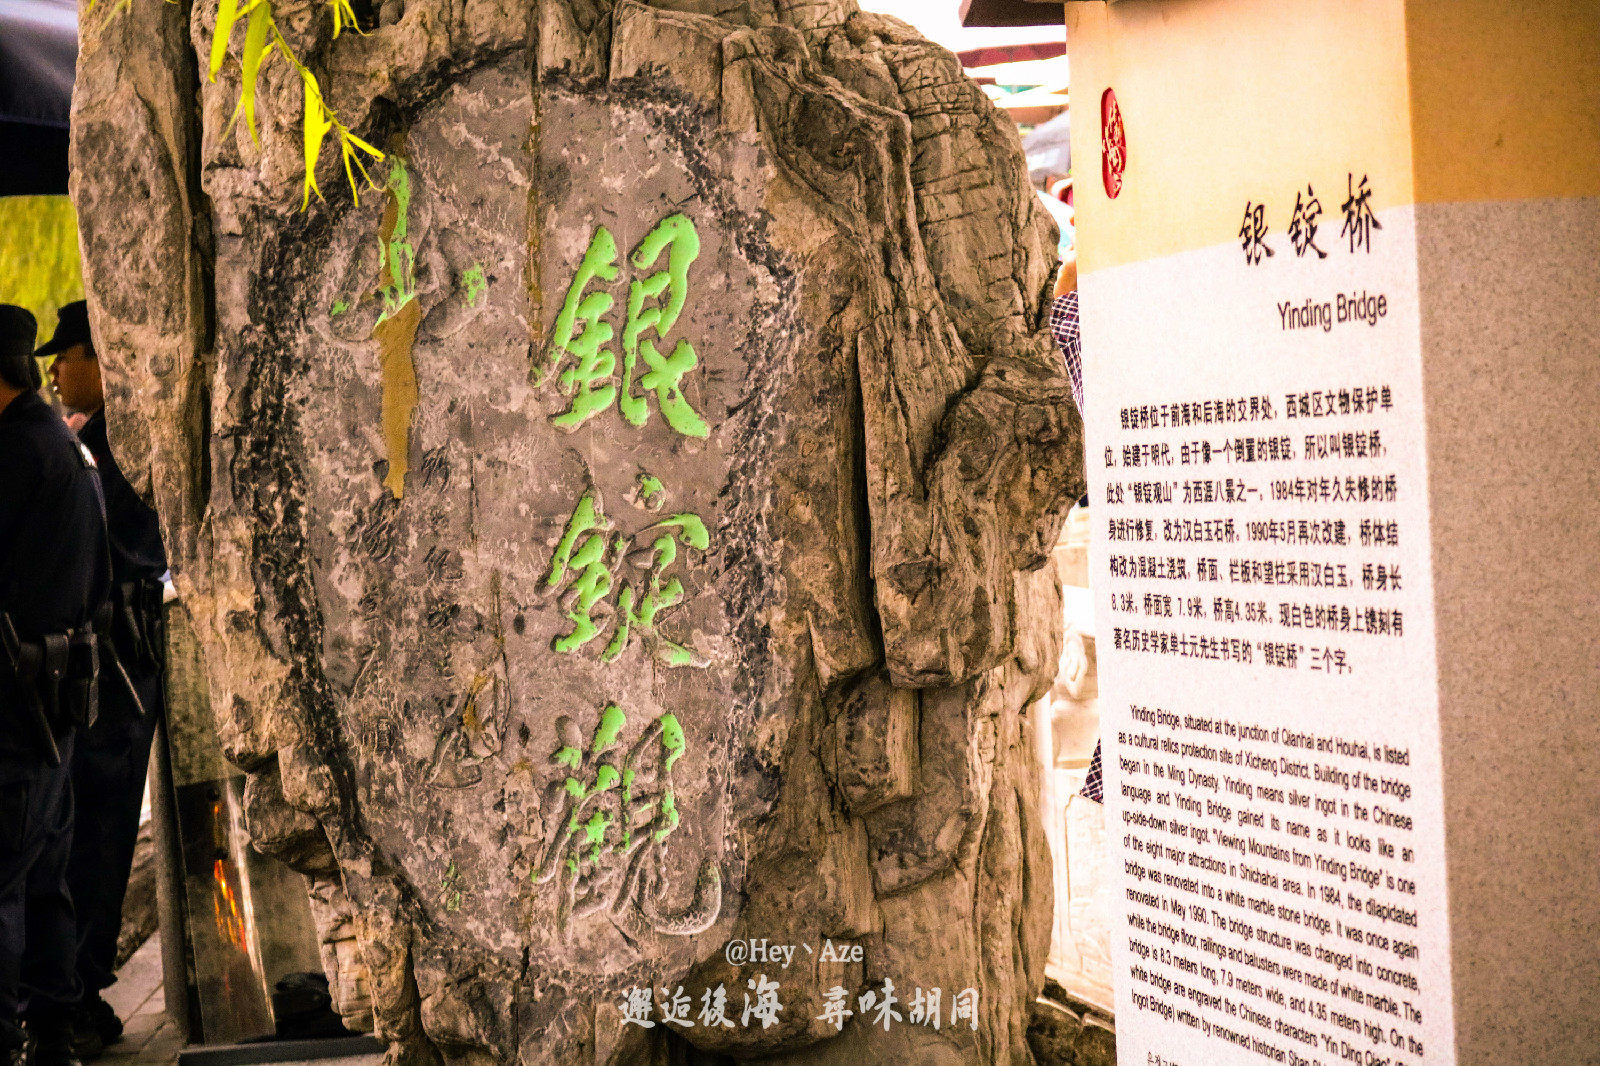 銀錠觀
山
银锭桥
Yinding Bridge
银锭桥位于前海和后海的交界处，西城区文物保护单
位，始建于明代，由于像一个倒置的银锭，所以叫银锭桥，
此处“银锭观山”为西涯八景之一。1984年对年久失修的桥
身进行修复，改为汉白玉石桥。1990年5月再次改建，桥体结
构改为混凝土浇筑，桥面、栏板和望柱采用汉白玉，桥身长
8.3米，桥面宽 7.9米，桥高4.35米。现白色的桥身上镌刻有
著名历史学家单士元先生书写的“银锭桥”三个字。
Yinding Bridge, situated at the junction of Qianhai and Houhai, is listed
as a cultural relics protection site of Xicheng District. Building of the bridge
began in the Ming Dynasty. Yinding means silver ingot in the Chinese
language and Yinding Bridge gained its name as it looks like an
up-side-down silver ingot. "Viewing Mountains from Yinding Bridge" is one
of the eight major attractions in Shichahai area. In 1984, the dilapidated
bridge was renovated into a white marble stone bridge. It was once again
renovated in May 1990. The bridge structure was changed into concrete,
while the bridge floor, railings and balusters were made of white marble. The
bridge is 8.3 meters long, 7.9 meters wide, and 4.35 meters high. On the
white bridge are engraved the Chinese characters "Yin Ding Qiao"
Ingot Bridge) written by renowned historian Shan
@Hey丶Aze
邂逅後海 尋味胡同